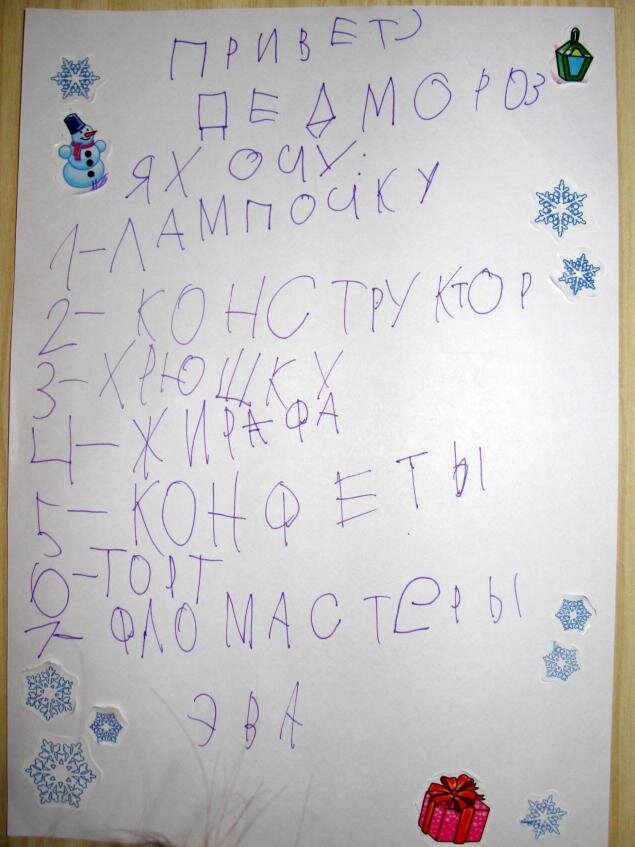 ПРИВЕТ
ДЕД МОРОЗ
ЯХ ОЧУ:
1-ЛАМПОЧКУ
2-КОНСТРУКТОР
3-ХРЮШКУ
4-ЖИРАФА
5-КОНФЕТЫ
6-ТОРТ
7-ФЛОМАСТЕРЫ
ЭВА